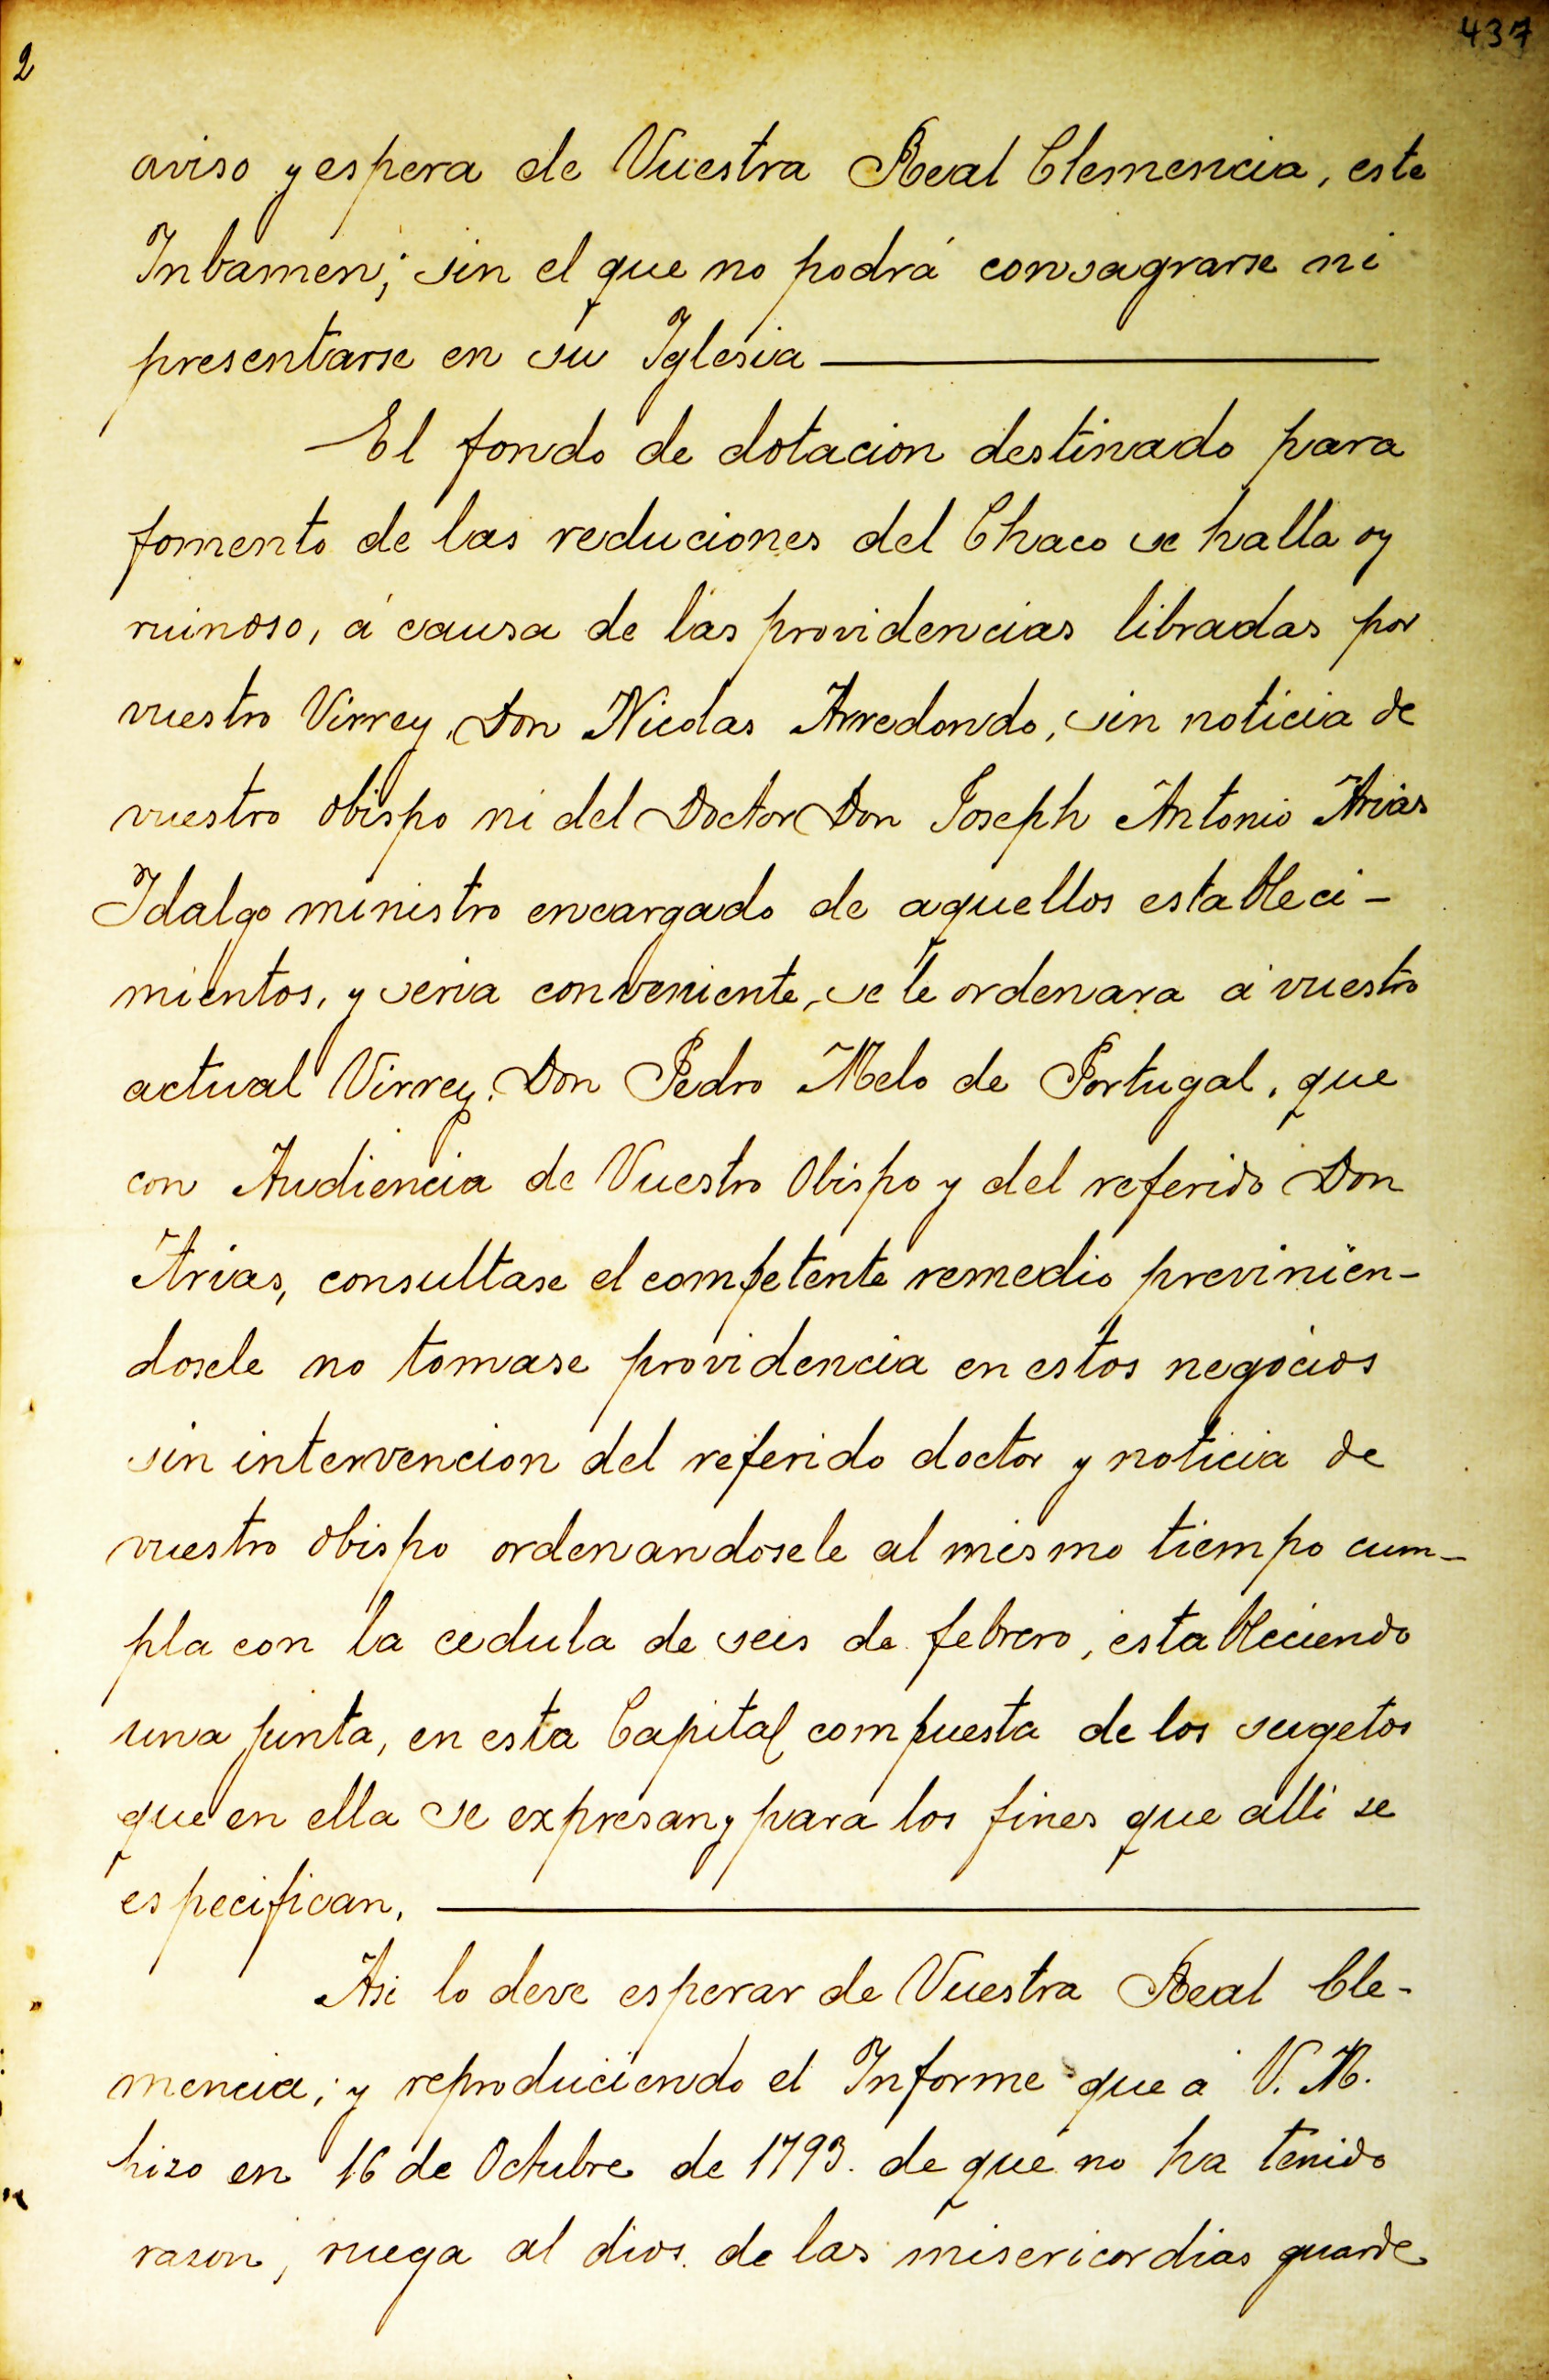 437
2
aviso y espera de Vuestra Real Clemencia, este
Inbamen; sin el que no podrá consagrarse ni
presentarse en su Iglesia
El fondo de dotacion destinado para
fomento de las reduciones del Chaco se halla oy
ruinoso, á causa de las providencias libradas por
vuestro Virrey, Don Nicolas Arredondo, sin noticia de
vuestro obispo ni del Doctor Don Joseph Antonio Arias
Idalgo ministro encargado de aquellos estableci-
mientos, y seria conveniente, se le ordenara á vuestro
actual Virrey. Don Pedro Melo de Portugal, que
con Audiencia de Vuestro Obispo y del referido Don
Arias, consultase el competente remedio previnien-
dosele no tomase providencia en estos negocios
sin intervencion del referido doctor y noticia de
vuestro obispo ordenandosele al mismo tiempo cum-
pla con la cedula de seis de febrero, estableciendo
una junta, en esta Capital compuesta de los sugetos
que en ella se expresan y para los fines que alli se
especifican.
Asi lo deve esperar de Vuestra Real Cle-
mencia; y reproduciendo el Informe que á V. M.
hizo en 16 de Octubre de 1793. de que no ha tenido
rason, ruega al dios de las misericordias guarde